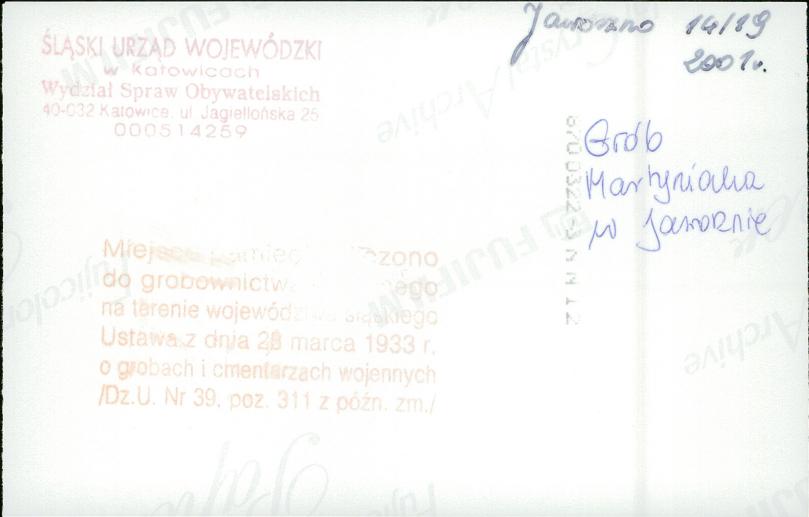 Jaworzno 14/19
2001r.
ŚLĄSKI URZĄD WOJEWÓDZKI
w Katowicach
Wydział Spraw Obywatelskich
40-032 Katowice, ul Jagiellońska 25
000514259
Grób
Martyniaka
w Jaworznie
Miejsce
do grobownictwa
na terenie województwa śląskiego
Ustawa z dnia 28 marca 1933 r.
o grobach i cmentarzach wojennych
/Dz.U. Nr 39. poz. 311 z późn. zm./
FUJIFILM
Crystal Archive
Fujicolor
FUJIFILM
Archive